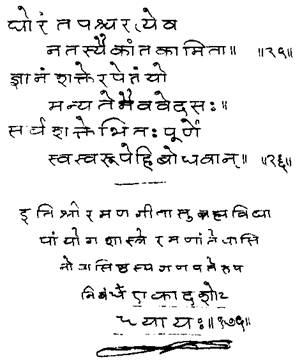 घोरंतपश्चरत्येव
नतस्यैकांतकामिता॥ ॥२५॥
ज्ञानं शक्तेरपेतं यो
मन्यतेनैववेदसः॥
सर्वशक्तेभितः पूर्णे
स्वस्वरूपेहिबोधवान्॥ ॥२६॥
इति श्रीरमणगीतासु ब्रह्मविद्या
यां योगशास्त्रे रमणांतेवासि
नोवासिष्ठस्य गणपतेरुप
निबंधे एकादशोऽ
ध्यायः॥१७५॥